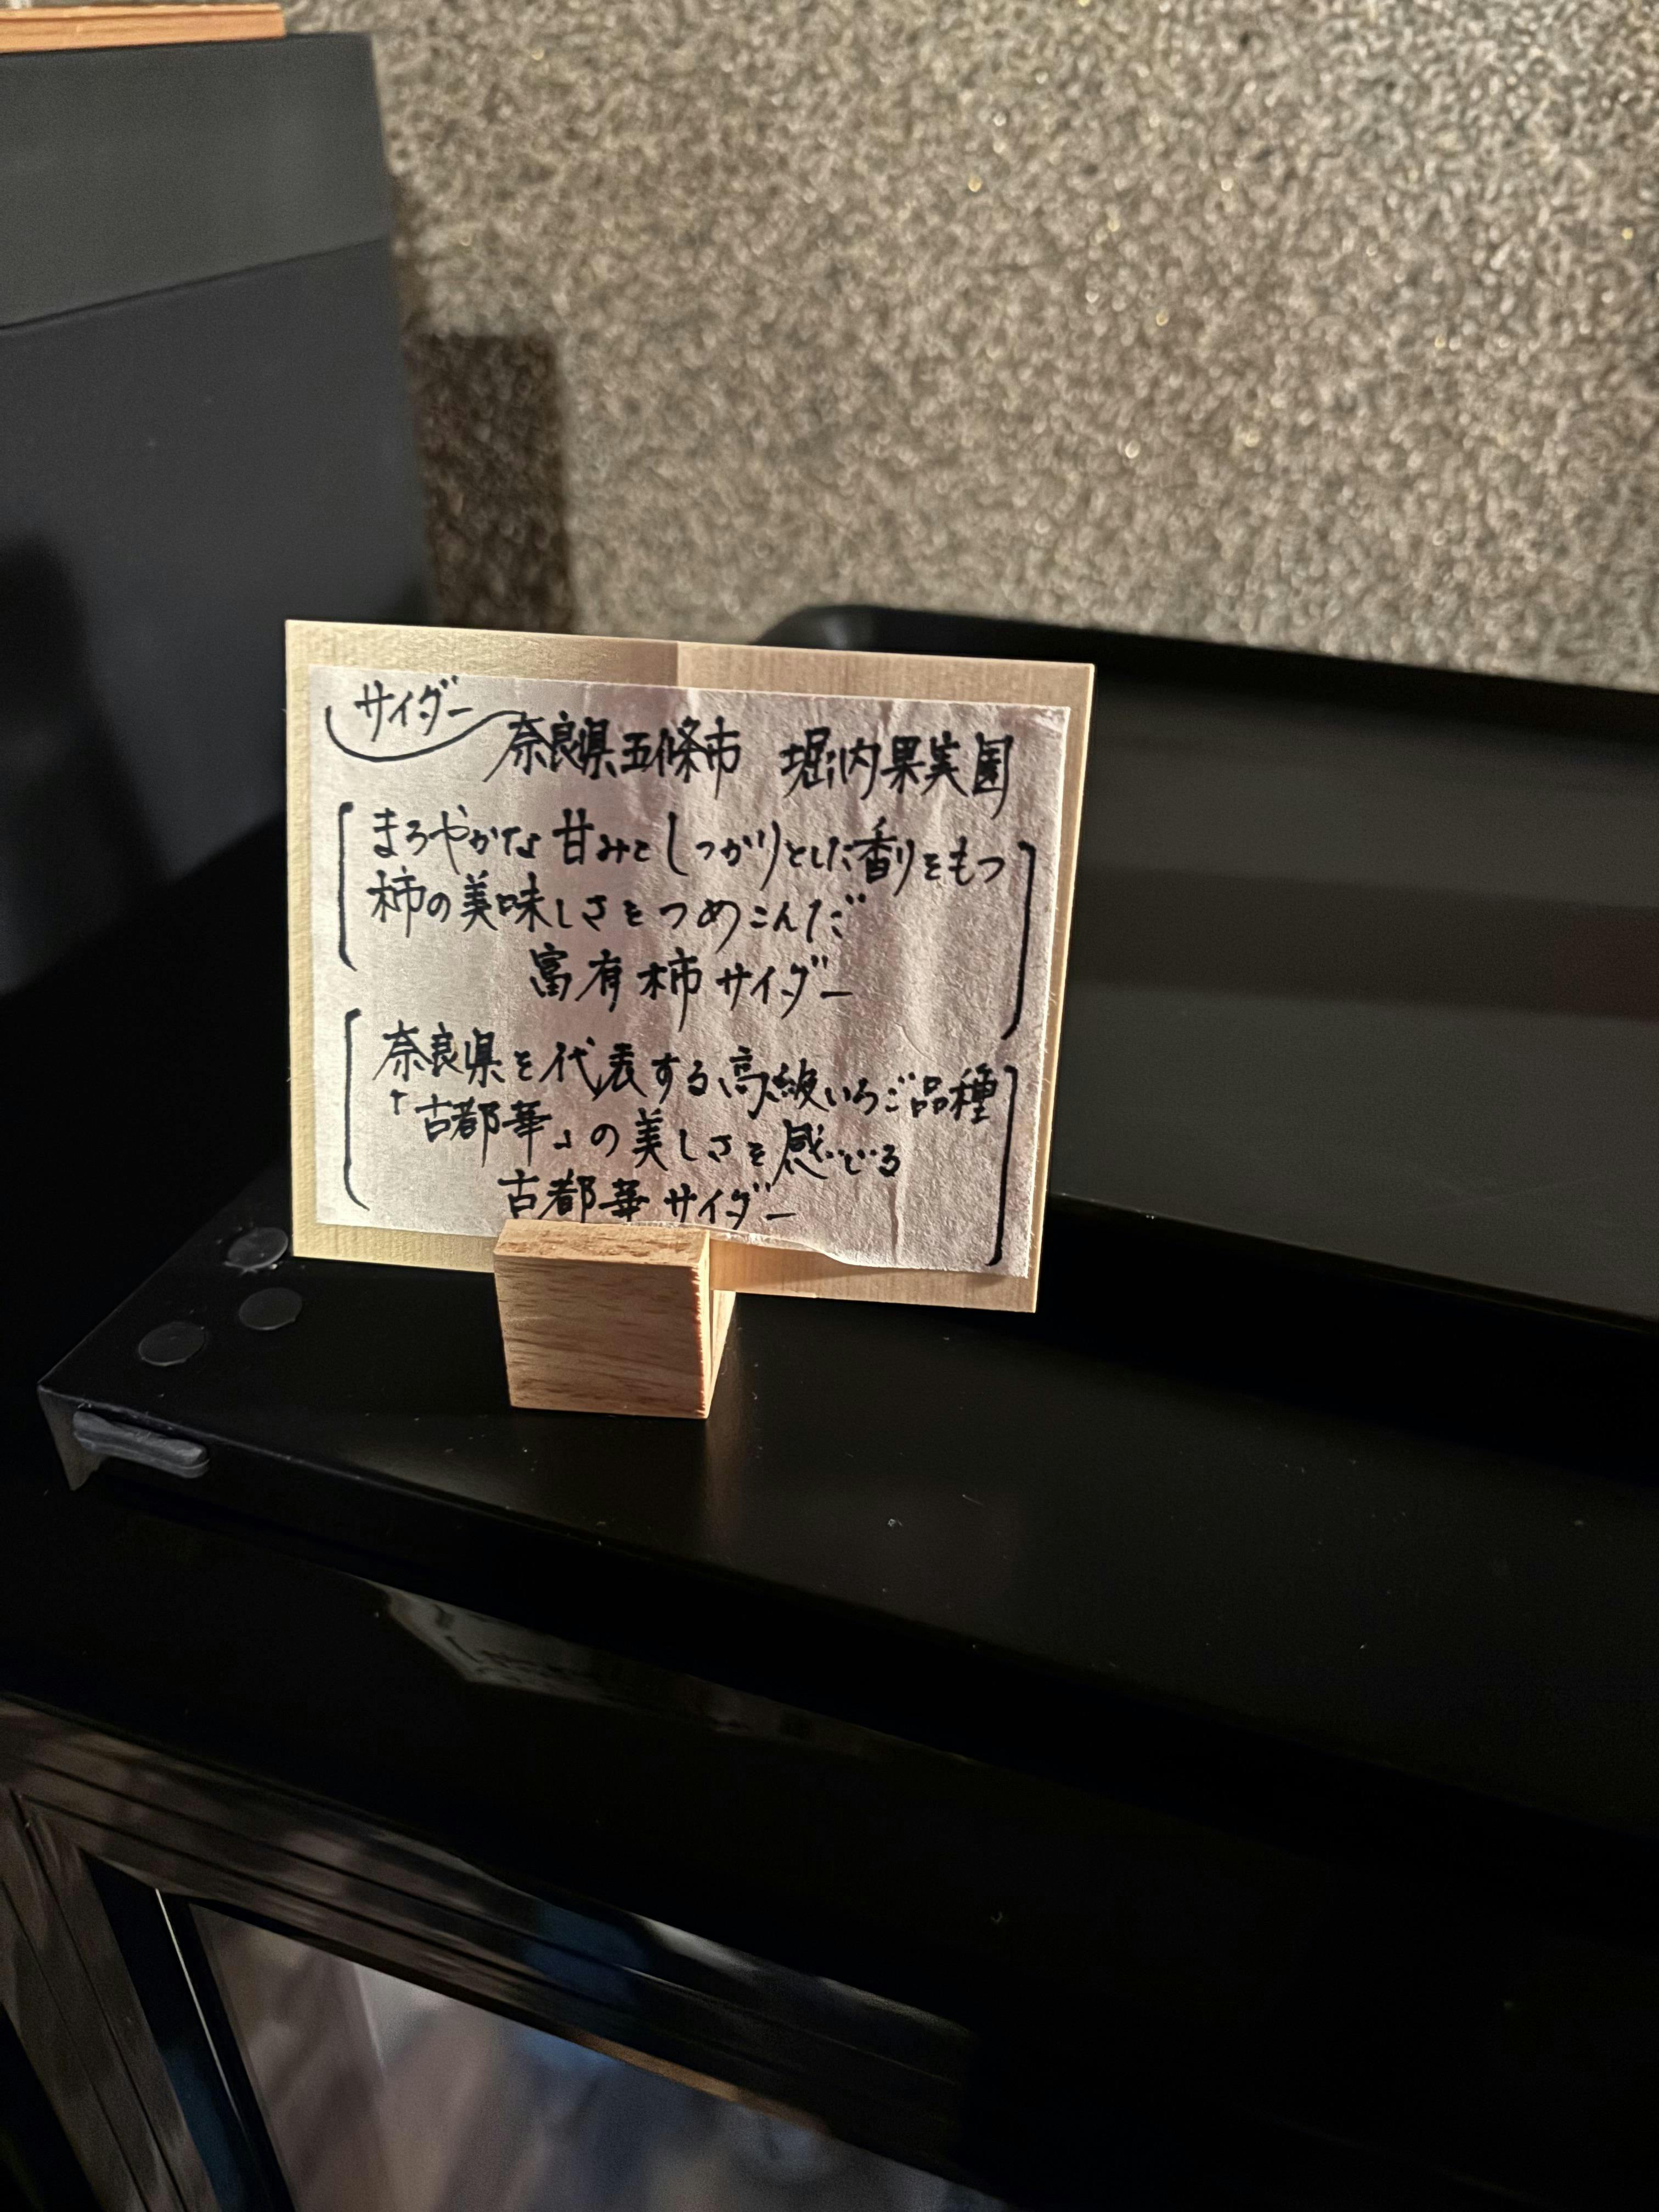 サイダー
奈良県五條市 堀内果実園
まろやかな甘みとしっかりとした香りをもつ
柿の美味しさをつめこんだ
富有柿サイダー
奈良県を代表する高級いちご品種
「古都華」の美しさを感じる
古都華サイダー